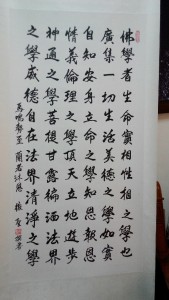 佛學者生命實相性相之學也
廣集一切生活美德之學如實
自知安身立命之學知恩報恩
情義倫理之學頂天立地遊步
神通之學菩提甘露徧洒法界
之學威德自在法界清淨之學
馬鳴 蘭若